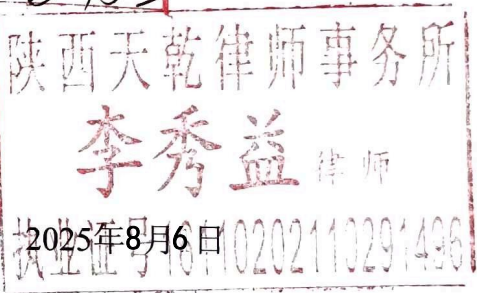 陕西天乾律师事务所
李秀益 律师
执业证号16110202110291496
2025年8月6日